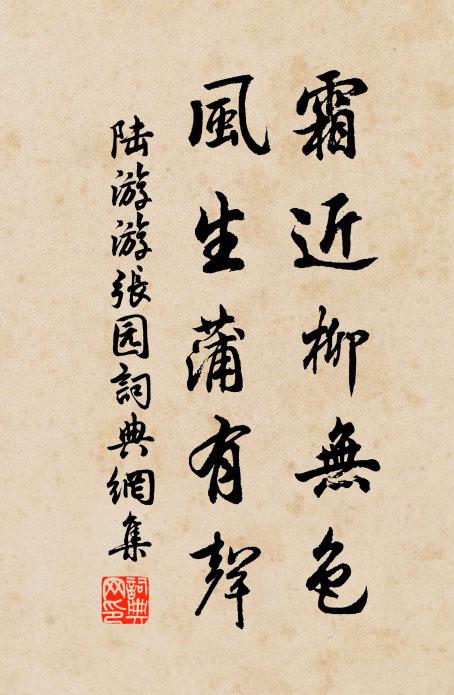 霜近柳無色
風生蒲有聲
陆游游張园詞典網集
詞典網印